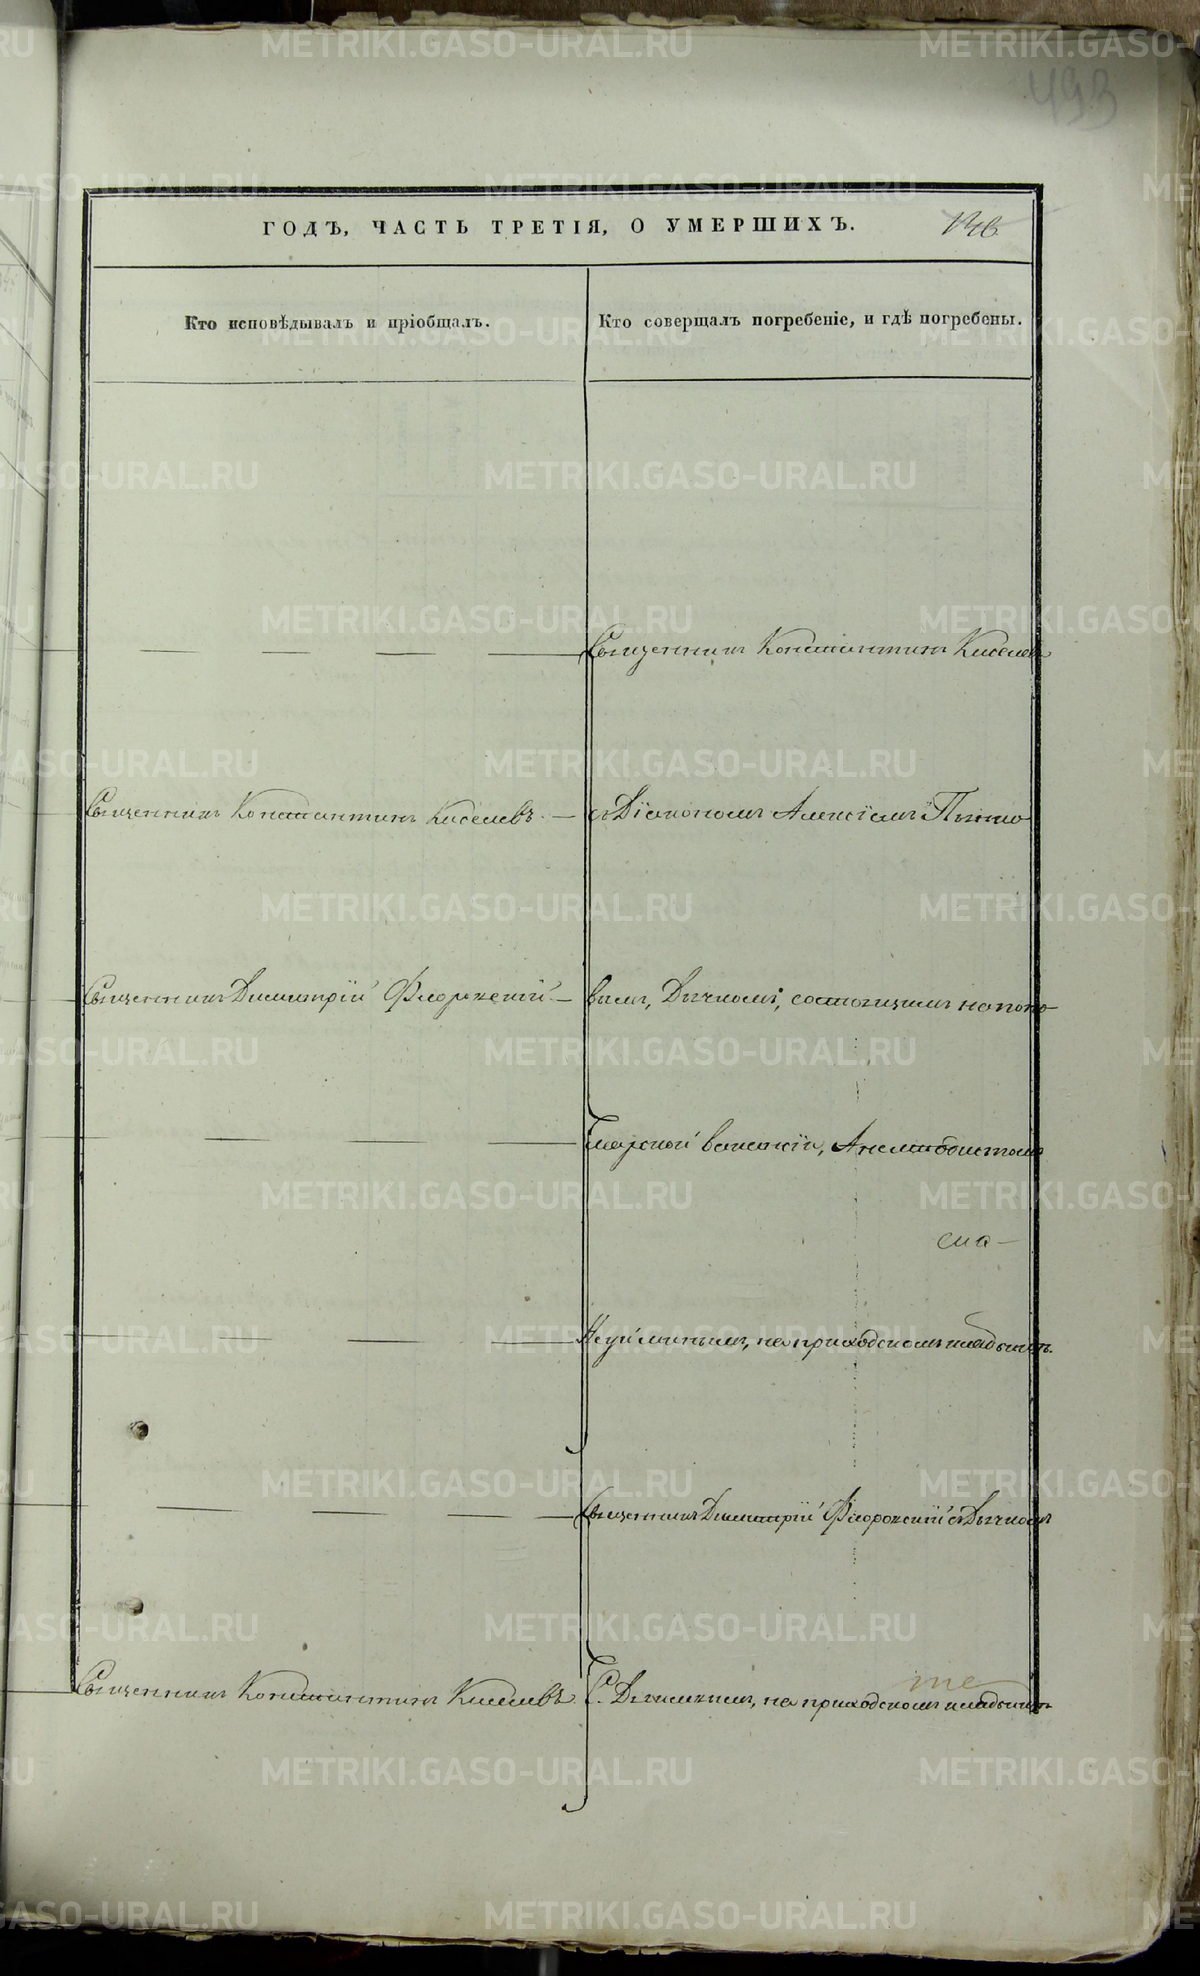 493
ГОДЪ, ЧАСТЬ ТРЕТІЯ, О УМЕРШИХЪ.
146
Кто исповѣдывалъ и пріобщалъ.
Кто совершалъ погребеніе, и гдѣ погребены.
Священникъ Константинъ Киселевъ
Священникъ Константинъ Киселевъ
съ Діакономъ Алексіемъ
Священникъ Димитрій Флоровскій
вымъ, Дьячкомъ, состоящимъ на поно
марской вакансіи,
Неуйминымъ, на приходскомъ кладбищѣ.
Священникъ Димитрій Флоровскій съ Дьячкомъ
Священникъ Константинъ Киселевъ
С. на приходскомъ кладбищѣ
те
METRIKI.GASO-URAL.RU